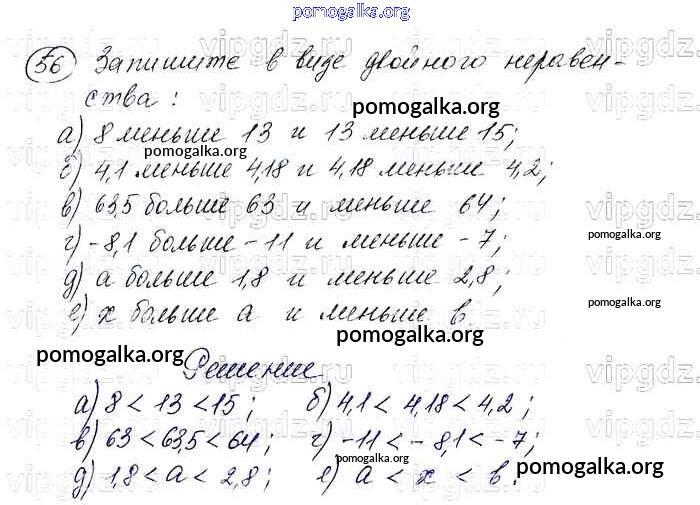 pomogalka.org
56 Запишите в виде двойного неравен-
ства:
pomogalka.org
а) 8 меньше 13 и 13 меньше 15;
pomogalka.org
б) 4,1 меньше 4,18 и 4,18 меньше 4,2;
в) 63,5 больше 63 и меньше 64;
pomogalka.org
г) -8,1 больше -11 и меньше -7;
д) а больше 1,8 и меньше 2,8;
pomogalka.org
е) х больше а и меньше в.
pomogalka.org
pomogalka.org
Решение
а) 8 < 13 < 15; б) 4,1 < 4,18 < 4,2;
в) 63 < 63,5 < 64; г) -11 < -8,1 < -7;
pomogalka.org
д) 1,8 < а < 2,8; е) а < х < в.
pomogalka.org
vipgdz